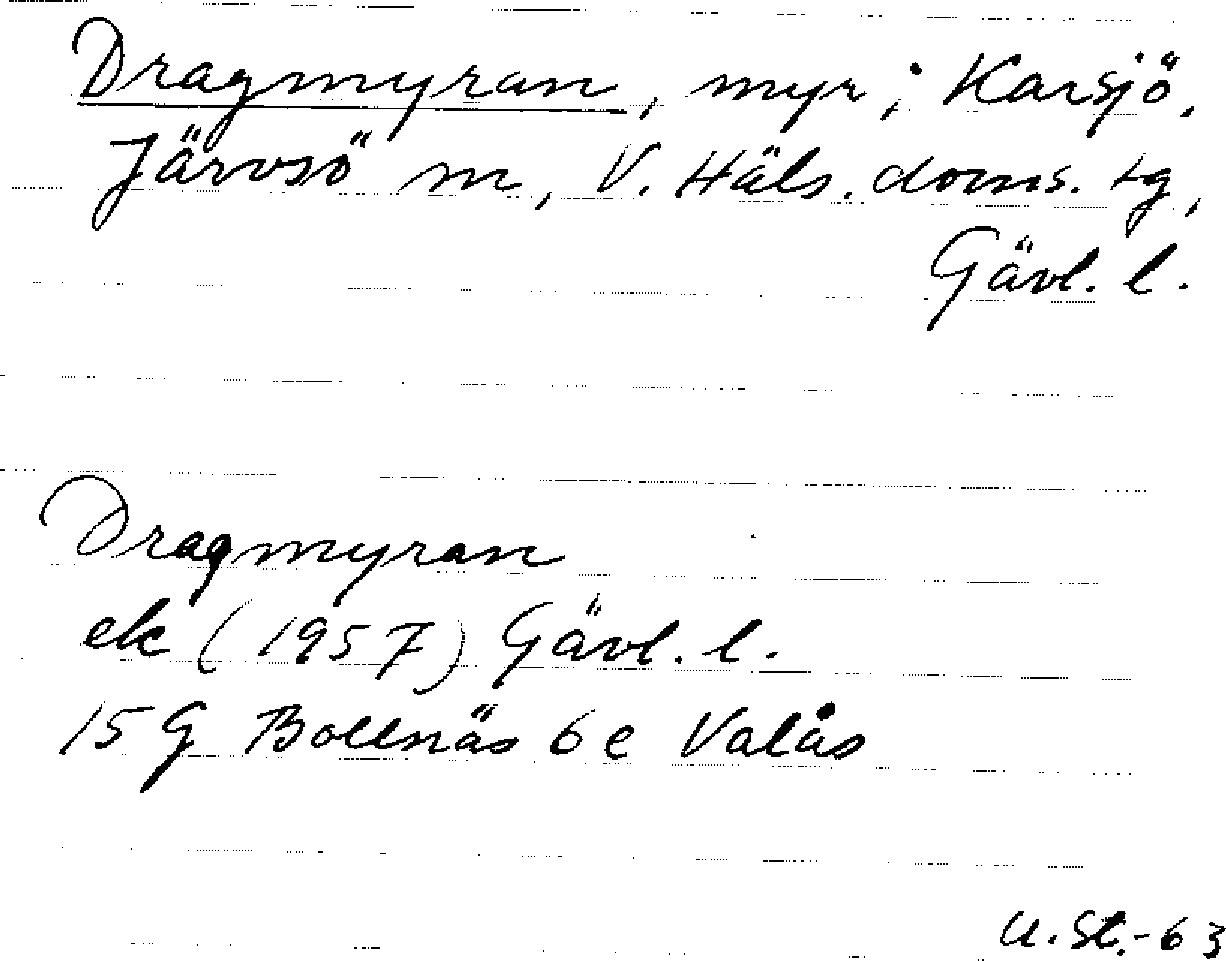 Dragmyran, myr; Karsjö,
Järvsö m, V. Häls. doms. tg,
Gävl. l.
Dragmyran
ek (1957) Gävl. l.
15 G Bollnäs 6e Valås
U. St.-63